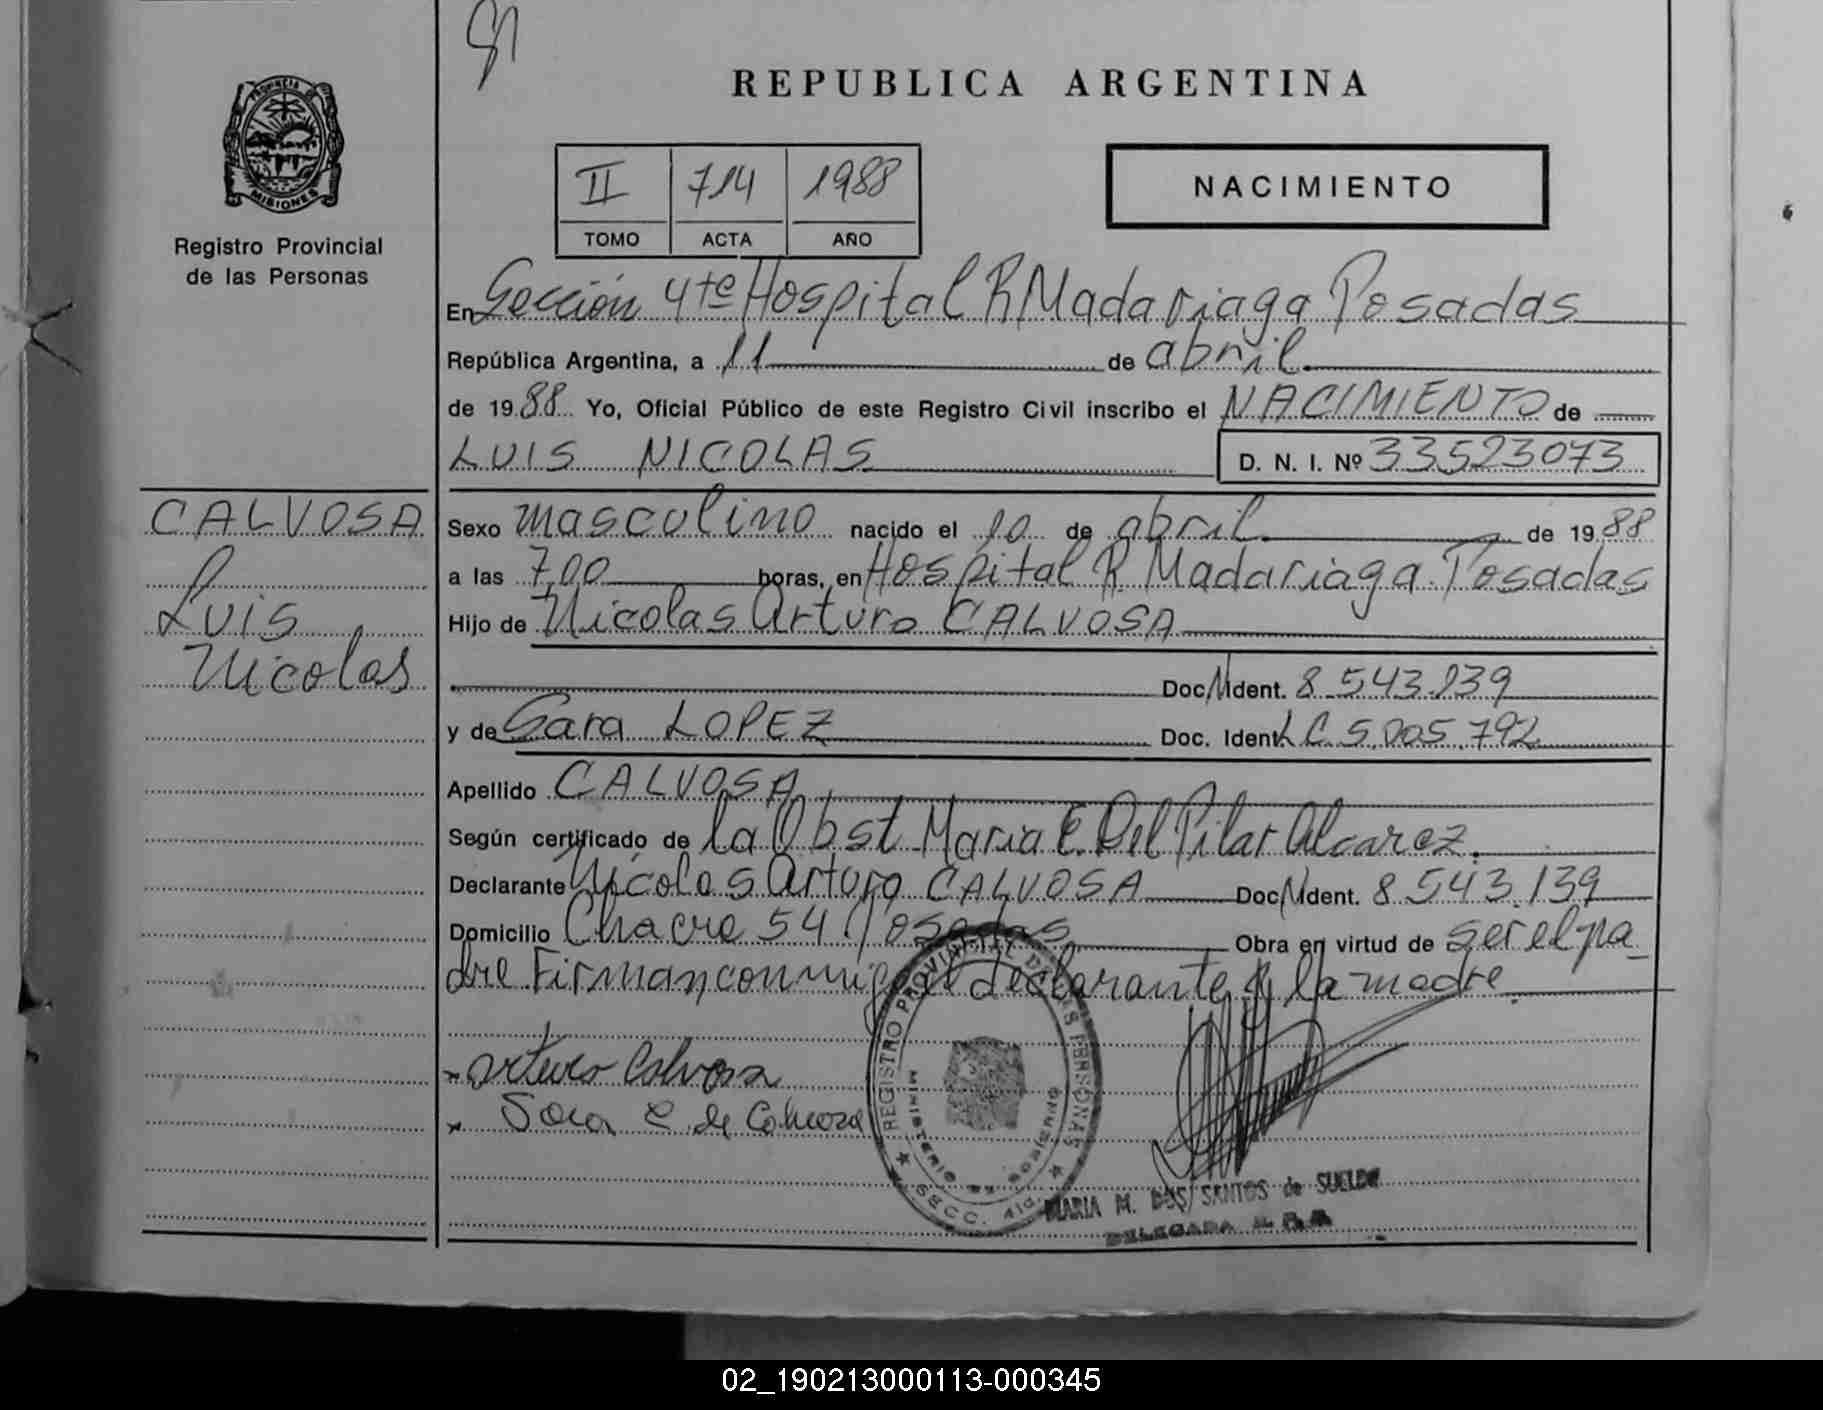 REPUBLICA ARGENTINA
PROVINCIA DE
MISIONES
Registro Provincial
de las Personas
II 714 1988
TOMO ACTA AÑO
NACIMIENTO
En Sección 4te Hospital R Madariaga Posadas
República Argentina, a 11 de abril
de 1988 Yo, Oficial Público de este Registro Civil inscribo el NACIMIENTO de
LUIS NICOLAS D. N. I. Nº 33523073
CALVOSA
Luis
Nicolas
Sexo masculino nacido el 10 de abril de 1988
a las 7,00 horas, en Hospital R. Madariaga. Posadas
Hijo de Nicolas Arturo CALVOSA
Doc N Ident. 8.543.139
y de Sara LOPEZ Doc. Ident. LC 5.005.792
Apellido CALVOSA
Según certificado de la Obst. Maria E. Del Pilar Alcarez.
Declarante Nicolas Arturo CALVOSA Doc N Ident. 8.543.139
Domicilio Chacra 54 Posadas Obra en virtud de ser el pa_
dre. Firman conmigo el declarante y la madre
Arturo Calvosa
Sara L de Calvosa
REGISTRO PROVINCIAL DE LAS PERSONAS
MINISTERIO DE GOBIERNO
SECC. 4ta
MARIA M. DOS SANTOS de SUELDO
DELEGADA
02_190213000113-000345